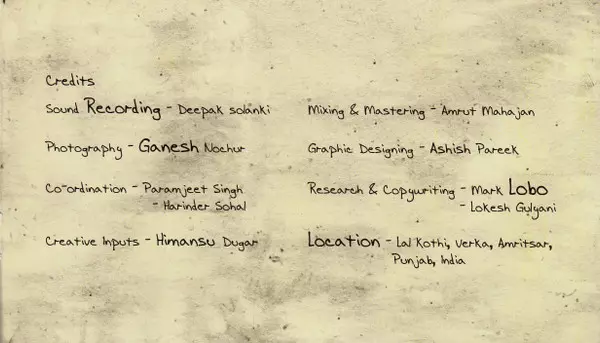 Credits
Sound Recording - Deepak Solanki
Photography - Ganesh Nochur
Co-ordination - Paramjeet Singh
- Harinder Sohal
Creative Inputs - Himansu Dugar
Mixing & Mastering - Amrut Mahajan
Graphic Designing - Ashish Pareek
Research & Copywriting - Mark Lobo
- Lokesh Gulyani
Location - Lal Kothi, Verka, Amritsar,
Punjab, India